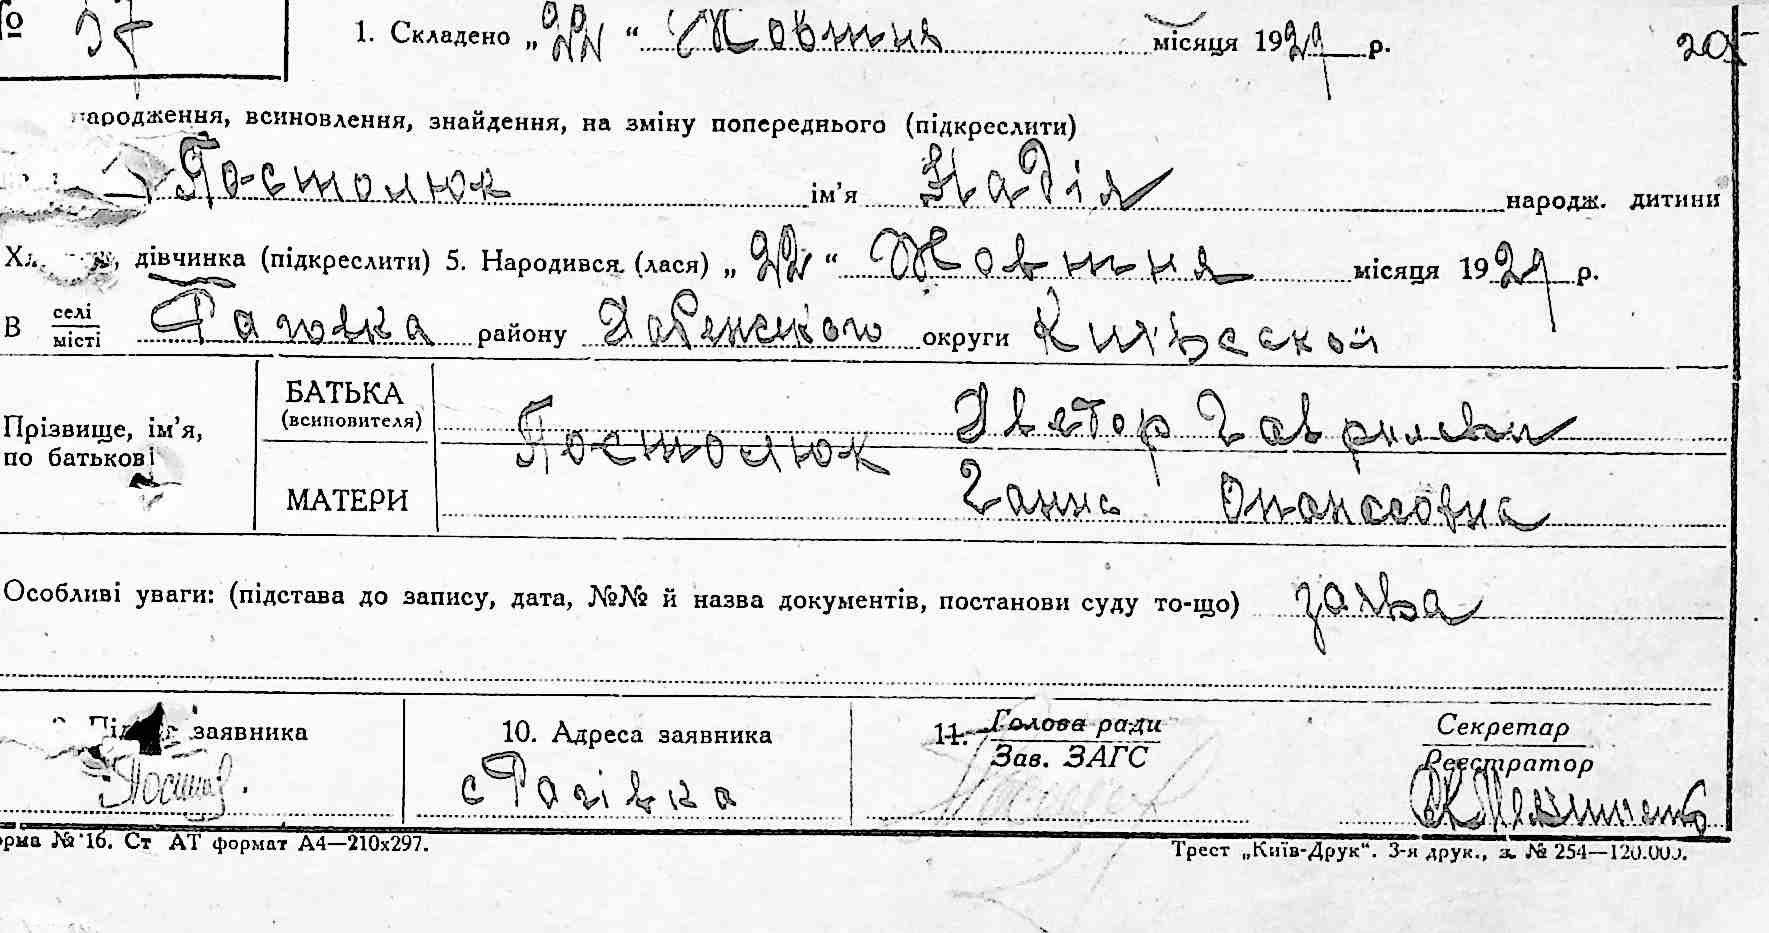 № 37 1. Складено „22“ Жовтня місяця 1929 р.
народження, всиновлення, знайдення, на зміну попереднього (підкреслити)
Постолюк ім’я Надія народж. дитини
дівчинка (підкреслити) 5. Народився (лася) „22“ Жовтня місяця 1929 р.
В селі
місті Раговка району Хабенского округи Київской
Прізвище, ім’я,
по батькові
БАТЬКА
(всиновителя)
Постолюк
МАТЕРИ
Ганна Опанасовна
Особливі уваги: (підстава до запису, дата, №№ й назва документів, постанови суду то-що) заява
заявника 10. Адреса заявника 11. Голова ради
Зав. ЗАГС
Секретар
Реєстратор
с Рагівка
орма № 16. Ст АТ формат А4—210х297. Трест „Київ-Друк“. 3-я друк., з. № 254—120.000.